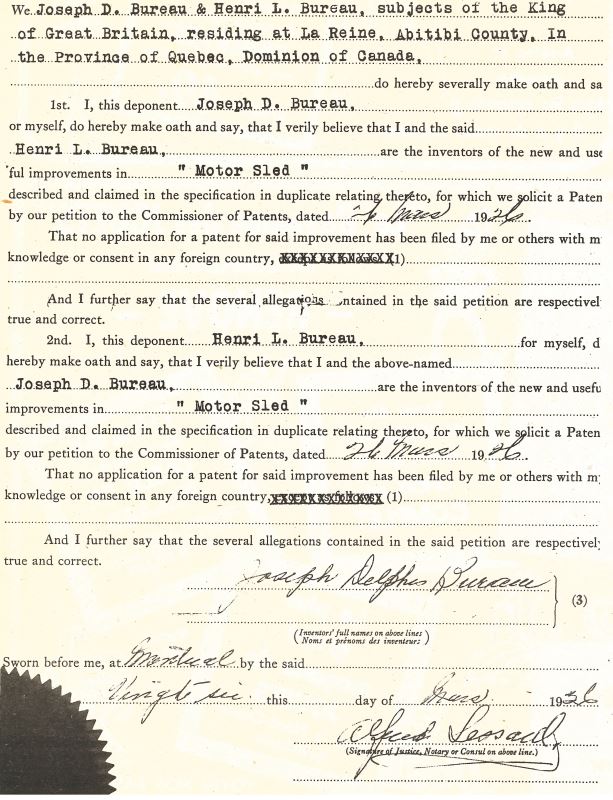 We Joseph D. Bureau & Henri L. Bureau, subjects of the King
of Great Britain, residing at La Reine, Abitibi County, In
the Province of Quebec, Dominion of Canada,
do hereby severally make oath and sa
1st. I, this deponent Joseph D. Bureau,
or myself, do hereby make oath and say, that I verily believe that I and the said
Henri L. Bureau, are the inventors of the new and use
ful improvements in " Motor Sled "
described and claimed in the specification in duplicate relating thereto, for which we solicit a Paten
by our petition to the Commissioner of Patents, dated 26 Mars 1926.
That no application for a patent for said improvement has been filed by me or others with m
knowledge or consent in any foreign country, (1)
And I further say that the several allegations contained in the said petition are respectivel
true and correct.
2nd. I, this deponent Henri L. Bureau, for myself, d
hereby make oath and say, that I verily believe that I and the above-named
Joseph D. Bureau, are the inventors of the new and usefu
improvements in " Motor Sled "
described and claimed in the specification in duplicate relating thereto, for which we solicit a Paten
by our petition to the Commissioner of Patents, dated 26 Mars 1926.
That no application for a patent for said improvement has been filed by me or others with m
knowledge or consent in any foreign country, (1)
And I further say that the several allegations contained in the said petition are respectively
true and correct.
Joseph Delphis Bureau
(3)
(Inventors' full names on above lines)
Noms et prénoms des inventeurs)
Sworn before me, at Montreal by the said
Vingt six this day of Mars 1926
Alfred
(Signature of Justice, Notary or Consul on above line.)